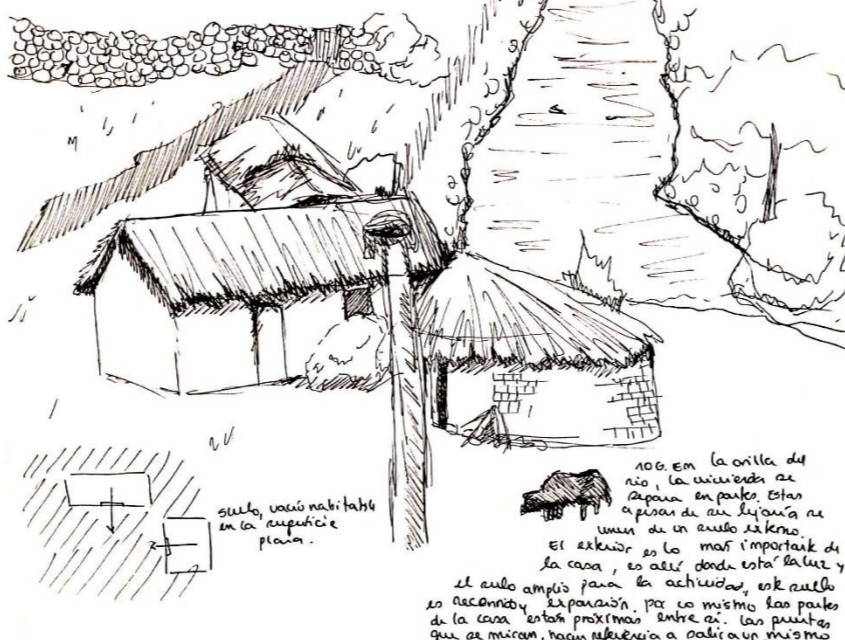 suelo, vacío habitable
en la superficie
plana.
106. En la orilla del
rio, la vivienda se
separa en partes. Estas
apesar de su lejanía se
unen de un suelo externo.
El exterior es lo mas importante de
la casa, es allí donde está la luz y
el suelo amplio para la actividad, este suelo
es recorrido y expansión. por lo mismo las partes
de la casa están próximas entre sí. Las puertas
que se miran, hacen referencia a salir a un mismo